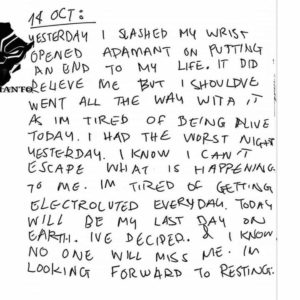 14 OCT:
YESTERDAY I SLASHED MY WRIST
OPENED ADAMANT ON PUTTING
AN END TO MY LIFE. IT DID
RELIEVE ME BUT I SHOULDVE
WENT ALL THE WAY WITH IT
AS IM TIRED OF BEING ALIVE
TODAY. I HAD THE WORST NIGHT
YESTERDAY. I KNOW I CAN'T
ESCAPE WHAT IS HAPPENING
TO ME. IM TIRED OF GETTING
ELECTROLUTED EVERYDAY. TODAY
WILL BE MY LAST DAY ON
EARTH. IVE DECIDED. & I KNOW
NO ONE WILL MISS ME. IM
LOOKING FORWARD TO RESTING.